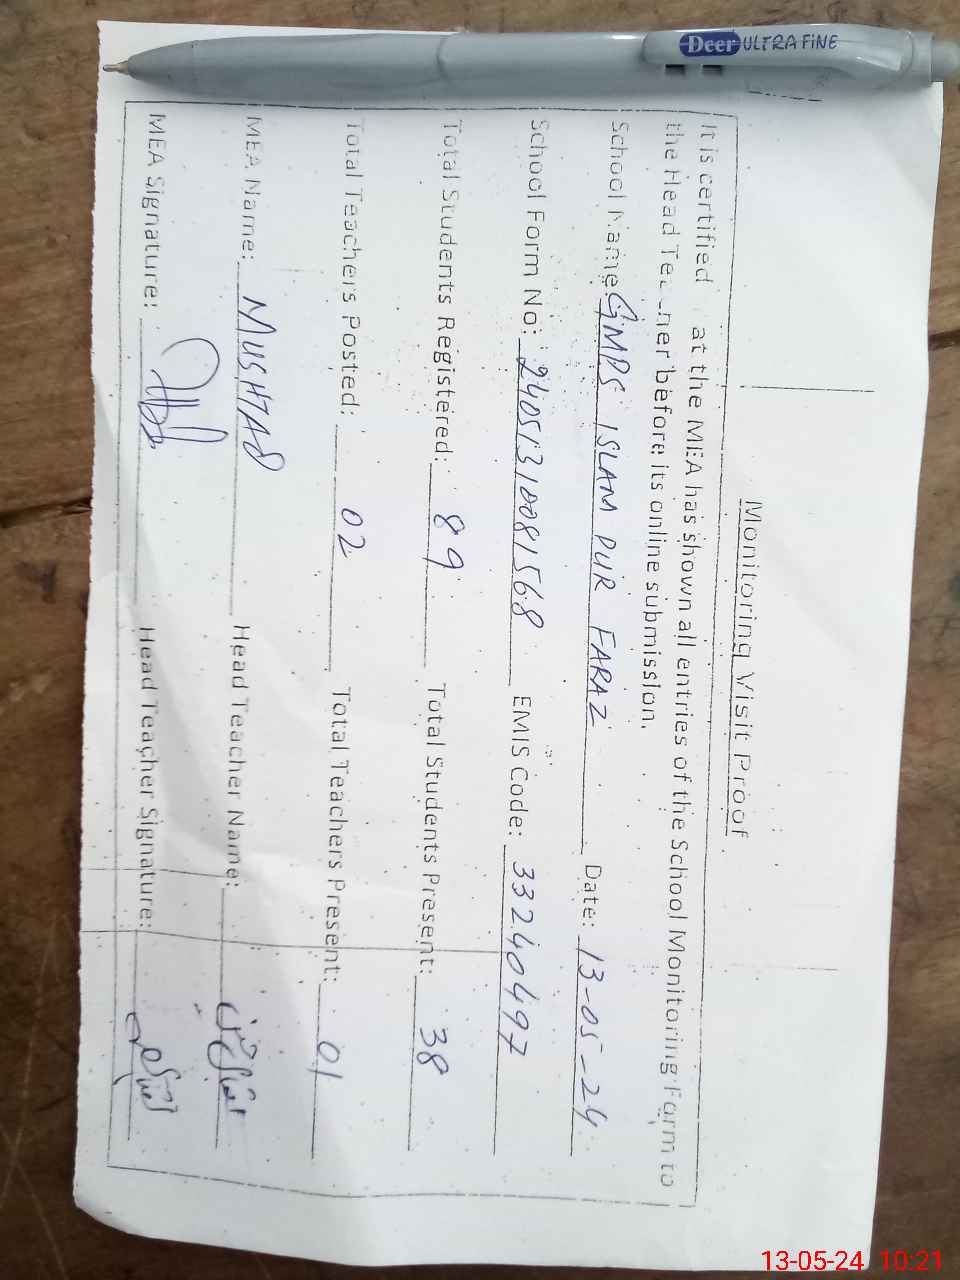 Deer ULTRA FINE
Monitoring Visit Proof
It is certified at the MEA has shown all entries of the School Monitoring Form to
the Head Te ner before its online submission.
School Name: GMPS ISLAM PUR FARAZ Date: 13-05-24
School Form No: 24051310081568 EMIS Code: 33240497
Total Students Registered: 89 Total Students Present: 38
Total Teachers Posted: 02 Total Teachers Present: 01
MEA Name: MUSHTAQ Head Teacher Name:
MEA Signature: Head Teacher Signature:
13-05-24 10:21